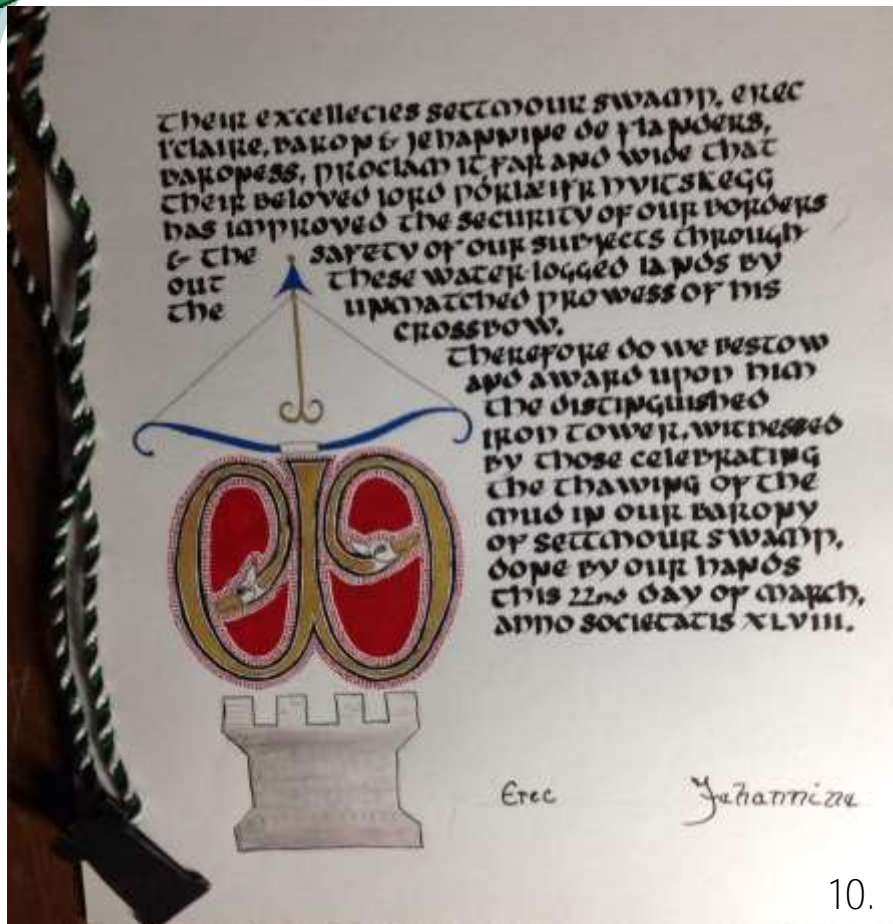 Their excellecies settmour swamp, erec
l'claire, baron & Jehannine de flanders,
baroness, proclam it far and wide that
their beloved lord Þórlæifr hvitskegg
has improved the security of our borders
& the safety of our subjects through
out these water-logged lands by
the unmatched prowess of his
crossbow.
Therefore do we bestow
and award upon him
the distinguished
iron tower, witnessed
by those celebrating
the thawing of the
mud in our barony
of settmour swamp,
done by our hands
this 22nd day of march,
anno societatis XLVIII.
Erec Jehannine
10.